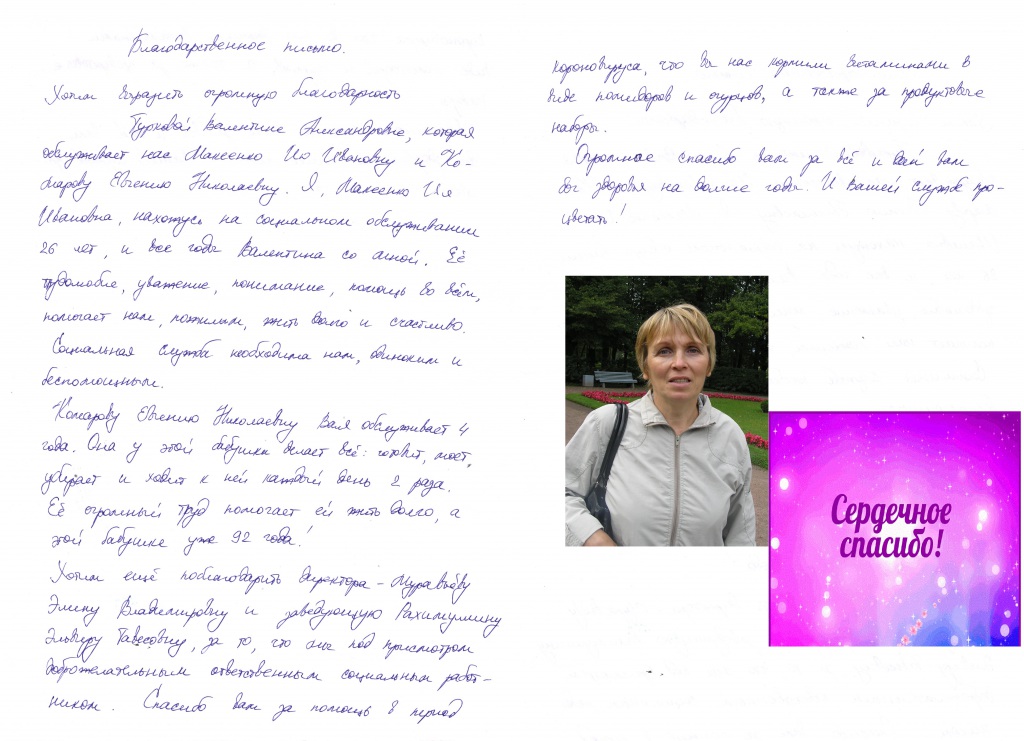 Благодарственное письмо.
Хотим выразить огромную благодарность
Валентине Александровне, которая
обслуживает нас Ивановну и Ко-
марову Евгению Николаевну. Я, Ия
Ивановна, нахожусь на социальном обслуживании
26 лет, и все годы Валентина со мной. Её
трудолюбие, уважение, понимание, помощь во всём,
помогает нам, пожилым, жить долго и счастливо.
Социальная служба необходима нам, одиноким и
беспомощным.
Комарову Евгению Николаевну Валя обслуживает 4
года. Она у этой бабушки делает всё: готовит, моет,
убирает и ходит к ней каждый день 2 раза.
Её огромный труд помогает ей жить долго, а
этой бабушке уже 92 года!
Хотим ещё поблагодарить директора – Муравьёву
Элину Владимировну и заведующую
Эльвиру, за то, что они под присмотром
доброжелательным ответственным социальным работ-
ником. Спасибо вам за помощь в период
короновируса, что вы нас кормили витаминами в
виде помидоров и огурцов, а также за продуктовые
наборы.
Огромное спасибо вам за всё и дай вам
бог здоровья на долгие годы. И Вашей службе про-
цветать!
Сердечное
спасибо!